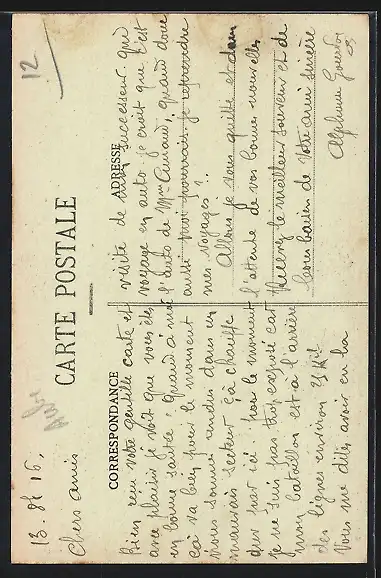 12
CARTE POSTALE
CORRESPONDANCE
ADRESSE
13. 8t 16,
Chers amis
Bien reçu votre gentille carte et
avec plaisir je voit que vous êtes
en bonne santée; quand à moi
çai va bien pour le moment
nous sommes rendus dans un
mauvais secteur çà chauffe
dur par ici: pour le moment
je ne suis pas trop exposé car
mon bataillon est à l'arrière
des lignes environ 25 Kil
Vous me dites avoir eu la
visite de mon successeur qui
voyage en auto je croit que c'est
l'auto de Mme quand donc
aussi moi pourrais-je reprendre
mes voyages?.
Allons je vous quitte et dans
l'attente de vos bonnes nouvelles
Recevez le meilleur souvenir et de
bons baiser de votre ami sincère
Alphonse